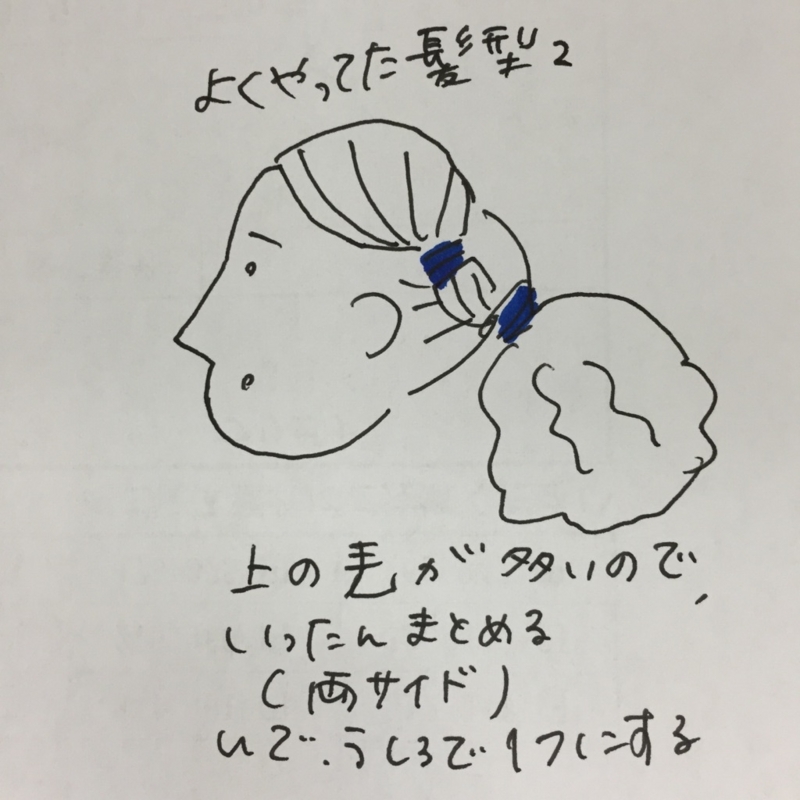 よくやってた髪型2
上の毛が多いので、
いったんまとめる
(両サイド)
んで、うしろで1つにする